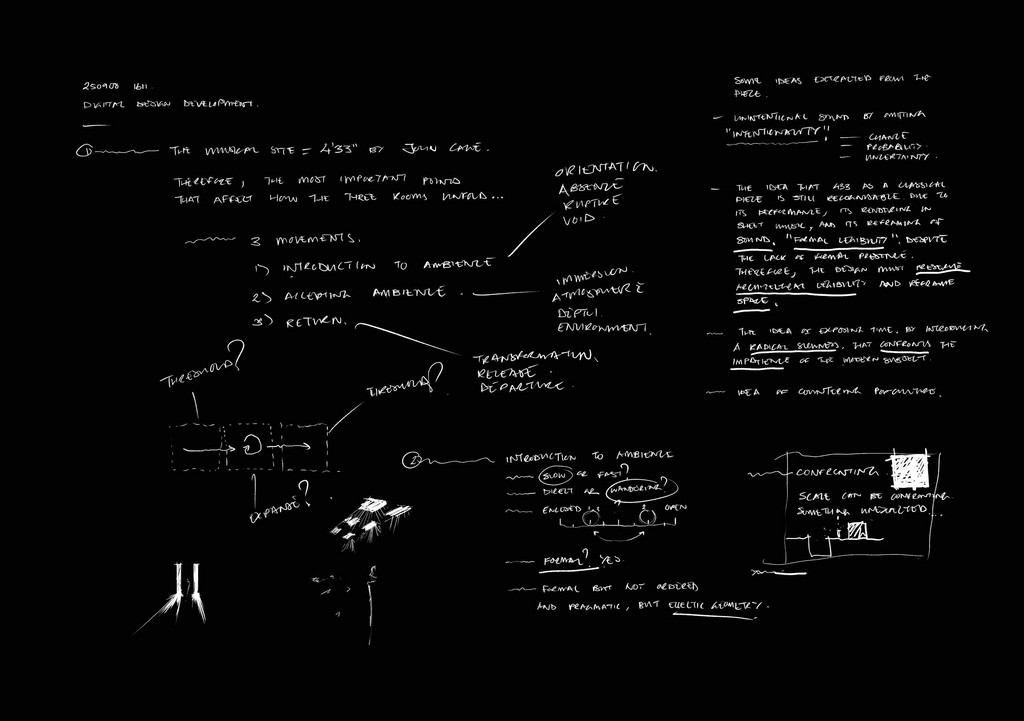 250900 1611.
DIGITAL DESIGN DEVELOPMENT.
1
THE MUSICAL SITE = 4'33" BY JOHN CAGE.
THEREFORE, THE MOST IMPORTANT POINTS
THAT AFFECT HOW THE THREE ROOMS UNFOLD...
3 MOVEMENTS.
1) INTRODUCTION TO AMBIENCE
2) ACCEPTING AMBIENCE.
3) RETURN.
ORIENTATION.
ABSENCE
RUPTURE
VOID.
IMMERSION.
ATMOSPHERE
DEPTH.
ENVIRONMENT.
TRANSFORMATION.
RELEASE.
DEPARTURE.
THRESHOLD?
THRESHOLD?
EXPANSE?
2
INTRODUCTION TO AMBIENCE
SLOW OR FAST?
DIRECT OR WANDERING?
ENCLOSED 1 2 OPEN
FORMAL? YES.
FORMAL BUT NOT ORDERED
AND PRAGMATIC, BUT ECLECTIC GEOMETRY.
SOME IDEAS EXTRACTED FROM THE
PIECE.
UNINTENTIONAL SOUND BY OMITTING
"INTENTIONALITY"
CHANCE
PROBABILITY.
UNCERTAINTY.
THE IDEA THAT 433 AS A CLASSICAL
PIECE IS STILL RECOGNISABLE. DUE TO
ITS PERFORMANCE, ITS RENDERING IN
SHEET MUSIC, AND ITS REFRAMING OF
SOUND. "FORMAL LEGIBILITY", DESPITE
THE LACK OF FORMAL PRESENCE.
THEREFORE, THE DESIGN MUST PRESERVE
ARCHITECTURAL LEGIBILITY AND REFRAME
SPACE.
THE IDEA OF EXPOSING TIME. BY INTRODUCING
A RADICAL SLOWNESS. THAT CONFRONTS THE
IMPATIENCE OF THE MODERN SUBJECT.
IDEA OF COUNTERING POP CULTURE.
CONFRONTING
SCALE CAN BE CONFRONTING.
SOMETHING UNEXPECTED...